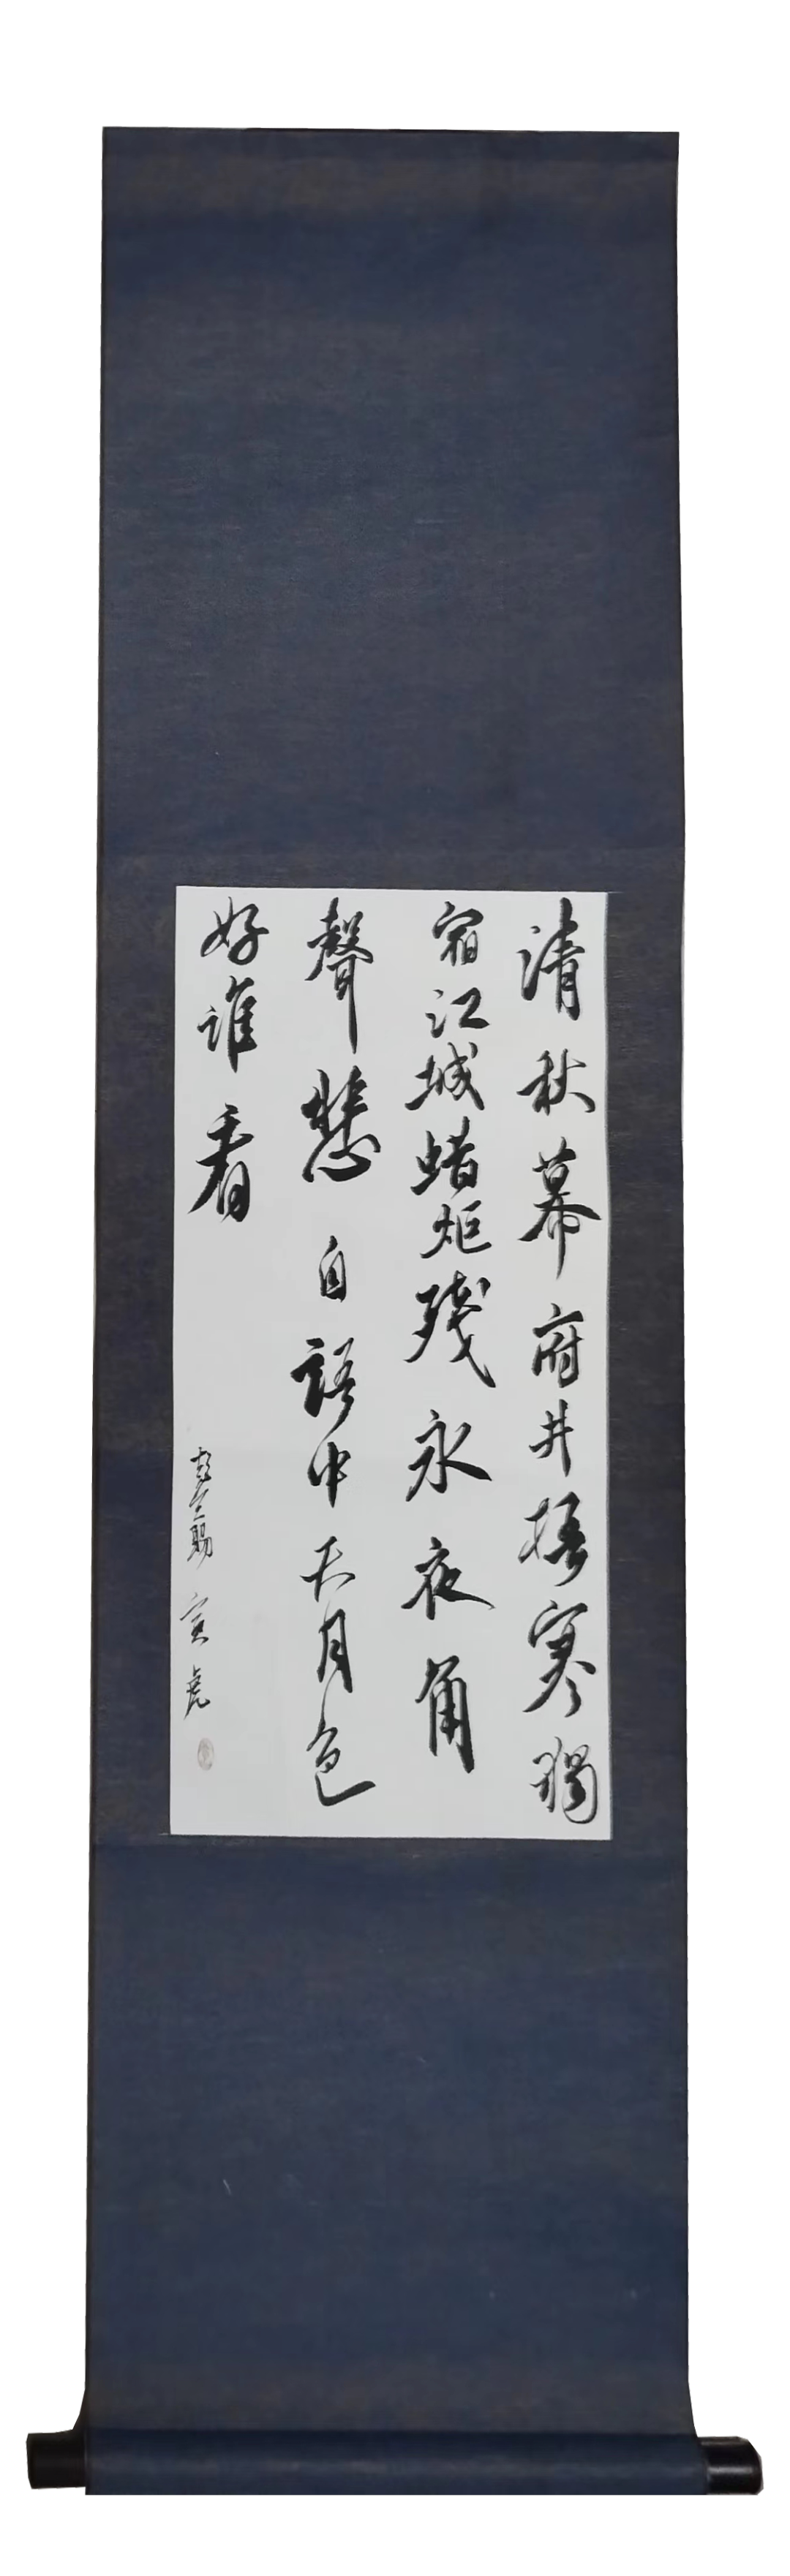 清秋幕府井梧寒獨
宿江城蜡炬殘永夜角
聲悲自語中天月色
好誰看
寅虎